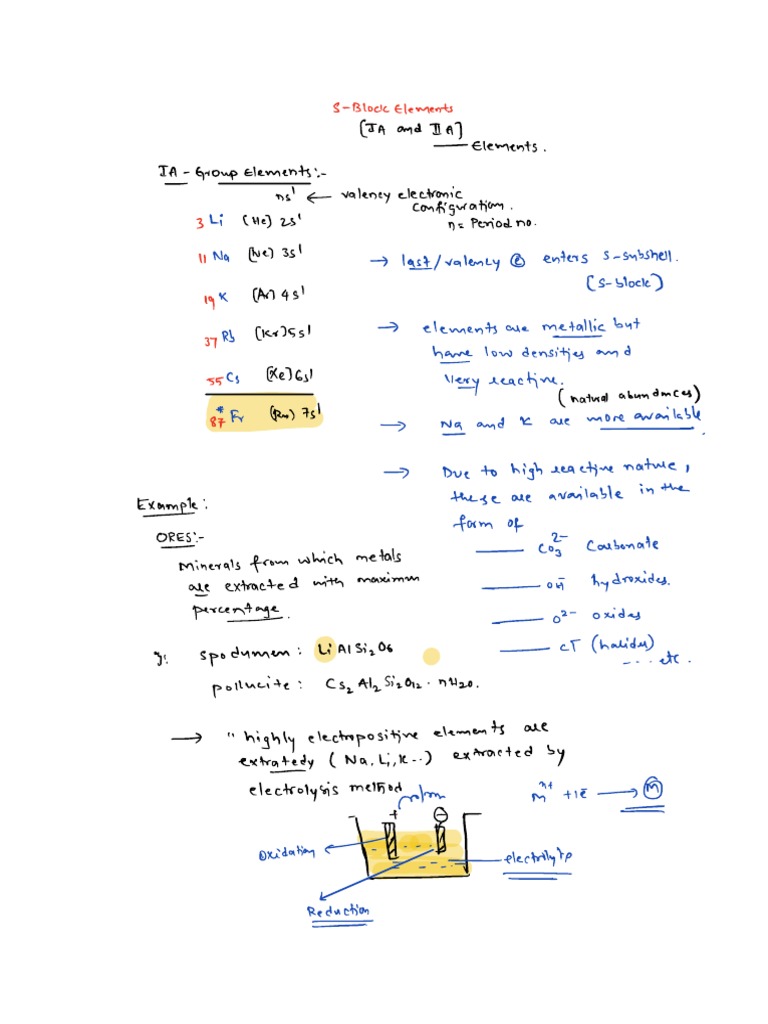 S-Block Elements
[IA and IIA]
Elements.
IA - Group Elements:-
ns¹ ← valency electronic
configuration.
n = Period no.
3 Li (He) 2s¹
11 Na (Ne) 3s¹
19 K (Ar) 4s¹
37 Rb (Kr) 5s¹
55 Cs (Xe) 6s¹
87 *Fr (Rn) 7s¹
→ last/valency e enters s-subshell.
(s-block)
→ elements are metallic but
have low densities and
very reactive.
(natural abundances)
→ Na and K are more available.
→ Due to high reactive nature,
these are available in the
form of
CO₃²⁻ Carbonate
OH⁻ hydroxides.
O²⁻ oxides
(halides)
---- etc.
Example:
ORES:-
Minerals from which metals
are extracted with maximum
percentage.
spodumen: LiAlSi₂O₆
pollucite: Cs₂Al₂Si₂O₁₂·nH₂O.
→ "highly electropositive elements are
extratedy (Na, Li, K..) extracted by
electrolysis method
Mⁿ⁺ + 1e⁻ → M
+ -
Oxidation
electrolyte
Reduction